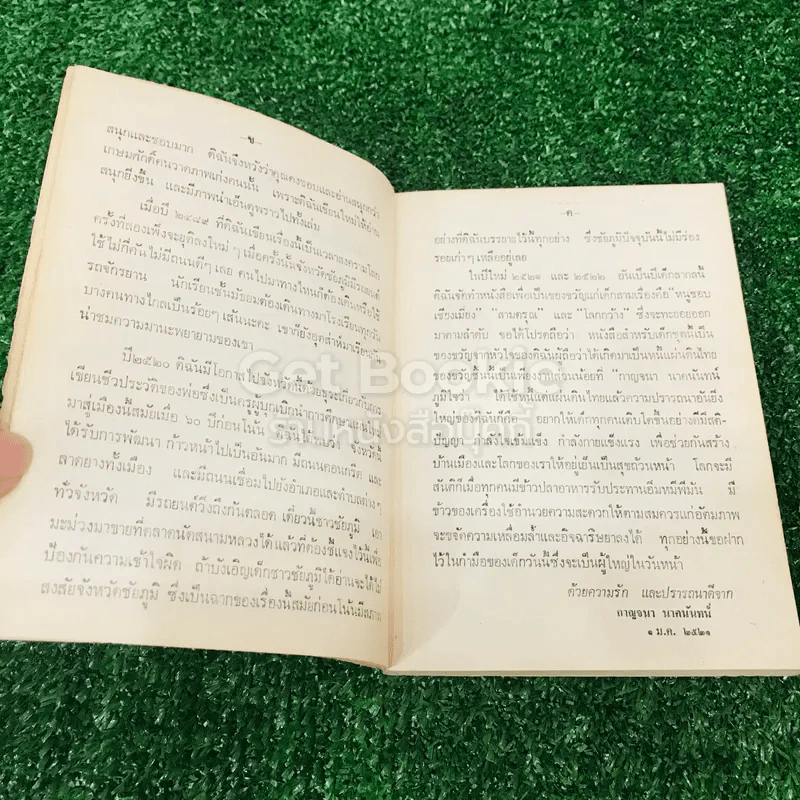 -ข-
สนุกและชอบมาก ดิฉันจึงหวังว่าคุณคงชอบและอ่านสนุกกว่า
เกษมศักดิ์คนวาดภาพเก่งคนนั้น เพราะดิฉันเขียนใหม่ให้อ่าน
สนุกยิ่งขึ้น และมีภาพน่าเอ็นดูพราวไปทั้งเล่ม
เมื่อปี ๒๔๘๙ ที่ดิฉันเขียนเรื่องนี้เป็นเวลาสงครามโลก
ครั้งที่สองเพิ่งจะยุติลงใหม่ ๆ เมื่อครั้งนั้นจังหวัดชัยภูมิมีรถยนต์
ใช้ไม่กี่คันไม่มีถนนดีๆ เลย คนไปมาทางไหนก็ต้องเดินหรือใช้
รถจักรยาน นักเรียนชั้นมัธยมต้องเดินทางมาโรงเรียนทุกวัน
บางคนทางไกลเป็นร้อยๆ เส้นนะคะ เขาก็ยังอุตส่าห์มาเรียน
น่าชมความมานะพยายามของเขา
ปี๒๕๒๐ ดิฉันมีโอกาสไปจังหวัดนี้ด้วยธุระเกี่ยวกับการ
เขียนชีวประวัติของพ่อซึ่งเป็นครูผู้บุกเบิกนำการศึกษาแผนใหม่
มาสู่เมืองนี้สมัยเมื่อ ๖๐ ปีก่อนโน้น เดี๋ยวนี้ชัยภูมิ จังหวัด
ได้รับการพัฒนา ก้าวหน้าไปเป็นอันมาก มีถนนคอนกรีตและ
ลาดยางทั้งเมือง และมีถนนเชื่อมไปยังอำเภอและตำบลต่างๆ
ทั่วจังหวัด มีรถยนต์วิ่งถึงกันตลอด เดี๋ยวนี้ชาวชัยภูมิ เอา
มะม่วงมาขายที่ตลาดนัดสนามหลวงได้ แล้วที่ต้องชี้แจงไว้นี้เพื่อ
ป้องกันความเข้าใจผิด ถ้าบังเอิญเด็กชาวชัยภูมิได้อ่านจะได้ไม่
สงสัยจังหวัดชัยภูมิ ซึ่งเป็นฉากของเรื่องนี้สมัยก่อนโน้นมีสภาพ
-ค-
อย่างที่ดิฉันบรรยายไว้นี้ทุกอย่าง ซึ่งชัยภูมิปัจจุบันนี้ไม่มีร่อง
รอยเก่าๆ เหลืออยู่เลย
ในปีใหม่ ๒๕๒๑ และ ๒๕๒๒ อันเป็นปีเด็กสากลนี้
ดิฉันจัดทำหนังสือเพื่อเป็นของขวัญแก่เด็กสามเรื่องคือ "หนูชอบ
เซียงเมี่ยง" "ดามดรุณ" และ "โลกกว้าง" ซึ่งจะทะยอยออก
มาตามลำดับ ขอได้โปรดถือว่า หนังสือสำหรับเด็กชุดนี้เป็น
ของขวัญจากหัวใจของดิฉันผู้ถือว่าได้เกิดมาเป็นหนี้แผ่นดินไทย
ของขวัญชิ้นนี้เป็นเพียงสิ่งตอบแทนเล็กน้อยที่ "กาญจนา นาคนันทน์
ภูมิใจว่า ได้ใช้หนี้แด่แผ่นดินไทยแล้วความปรารถนาอันยิ่ง
ใหญ่ของดิฉันก็คือ อยากให้เด็กทุกคนเติบโตขึ้นอย่างดีมีสติ-
ปัญญา กำลังใจเข้มแข็ง กำลังกายแข็งแรง เพื่อช่วยกันสร้าง
บ้านเมืองและโลกของเราให้อยู่เย็นเป็นสุขถ้วนหน้า โลกจะมี
สันติก็เมื่อทุกคนมีข้าวปลาอาหารรับประทานอิ่มหมีพีมัน มี
ข้าวของเครื่องใช้อำนวยความสะดวกให้ตามสมควรแก่อัตภาพ
จะขจัดความเหลื่อมล้ำและอิจฉาริษยาลงได้ ทุกอย่างนี้ขอฝาก
ไว้ในกำมือของเด็กวันนี้ซึ่งจะเป็นผู้ใหญ่ในวันหน้า
ด้วยความรัก และปรารถนาดีจาก
กาญจนา นาคนันทน์
๑ ม.ค. ๒๕๒๑
Get Bookie
ร้านหนังสือบุ๊คกี้